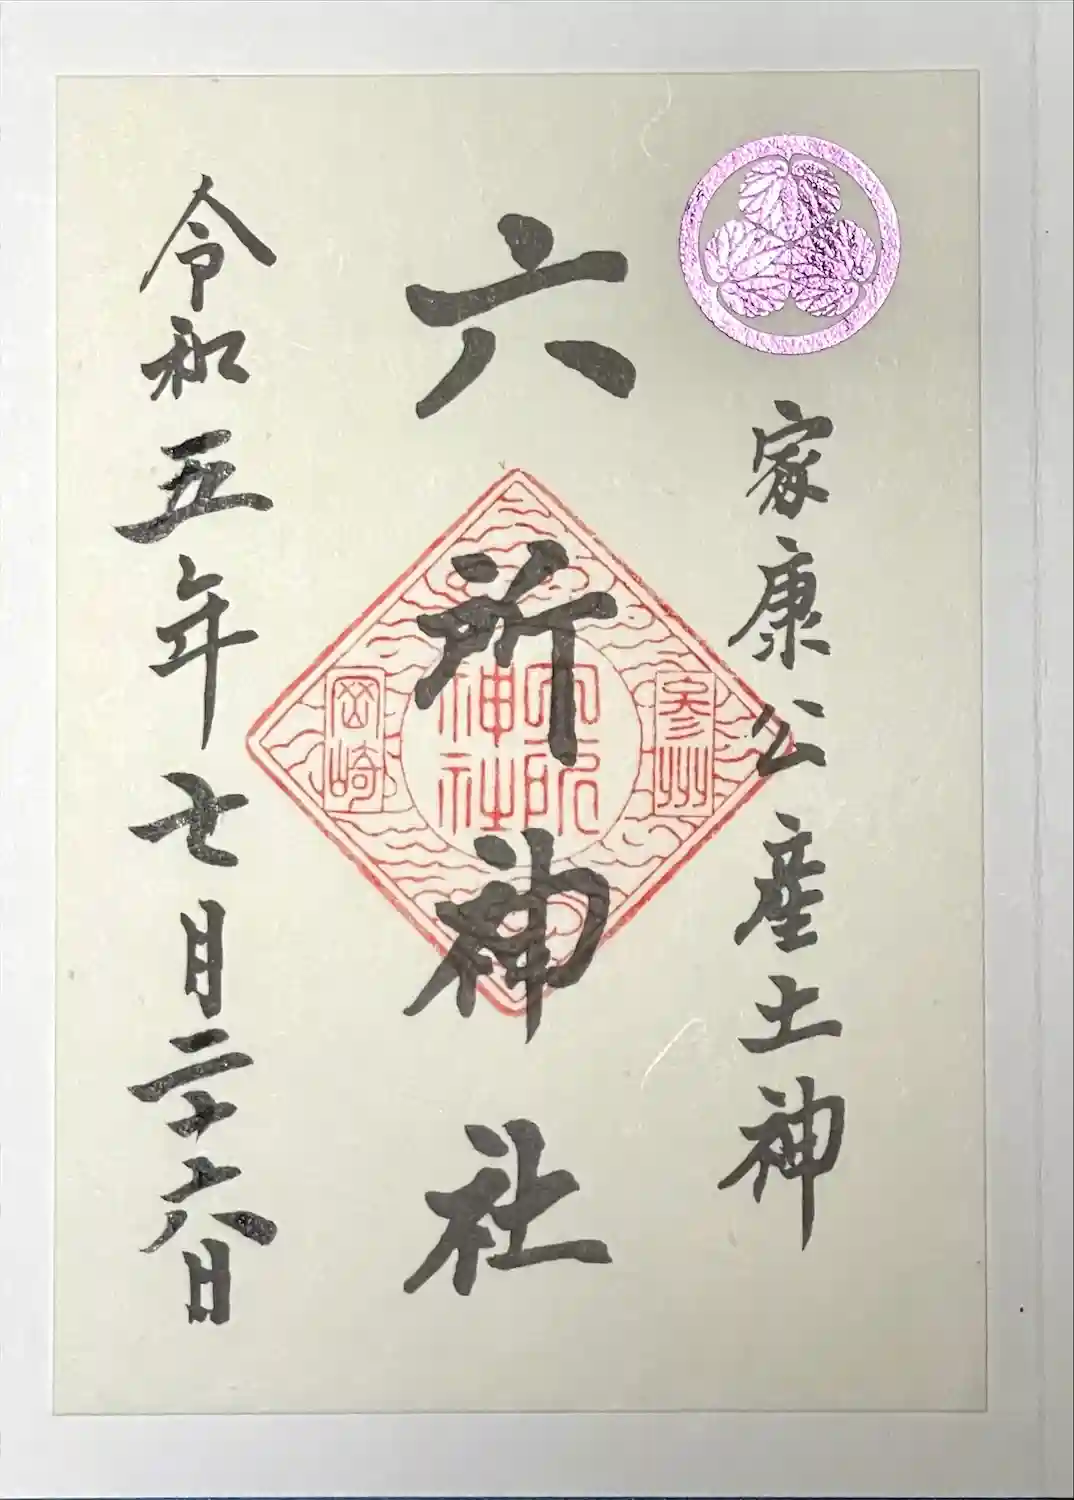 家康公産土神
六所神社
参州
六所
神社
岡崎
令和五年七月二十六日